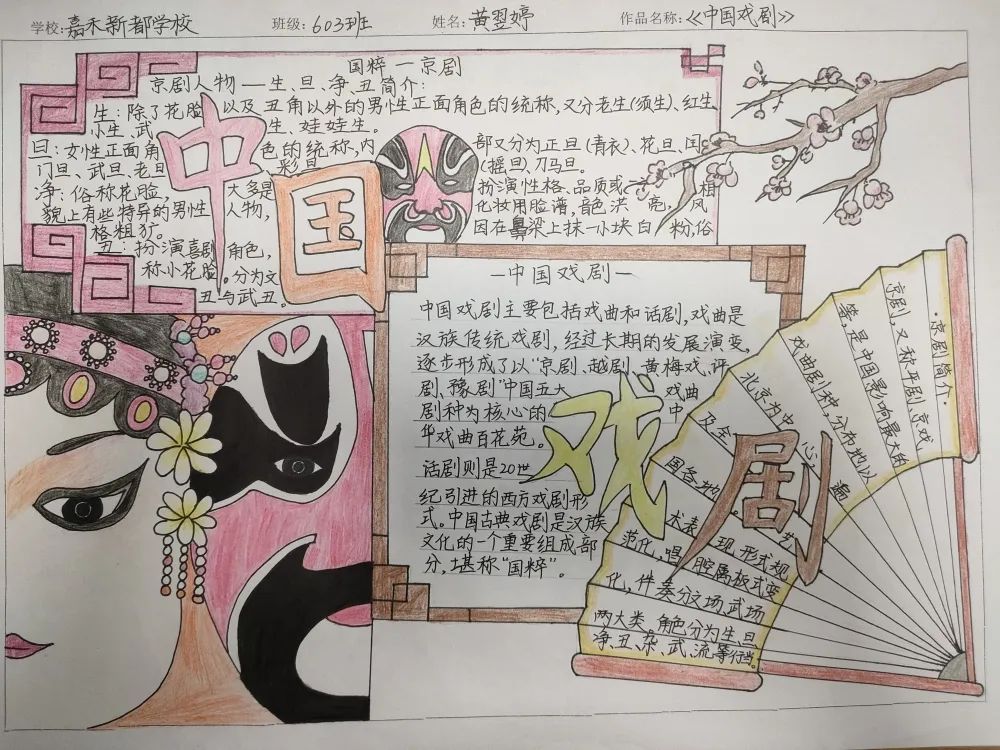 学校:嘉禾新都学校 班级:603班 姓名:黄翌婷 作品名称:《中国戏剧》
国粹一京剧
京剧人物一生、旦、净、丑简介:
生:除了花脸以及丑角以外的男性正面角色的统称,又分老生(须生)、红生
小生、武生、娃娃生。
旦:女性正面角色的统称,内部又分为正旦(青衣)、花旦、闺
门旦、武旦、老旦、彩旦(摇旦)、刀马旦。
净:俗称花脸,大多是扮演性格、品质或相
貌上有些特异的男性人物,化妆用脸谱,音色洪亮,风
格粗犷。
丑:扮演喜剧角色,因在鼻梁上抹一小块白粉,俗
称小花脸。分为文
丑与武丑。
中国
一中国戏剧一
中国戏剧主要包括戏曲和话剧,戏曲是
汉族传统戏剧,经过长期的发展演变,
逐步形成了以“京剧、越剧、黄梅戏、评
剧、豫剧”中国五大戏曲
剧种为核心的中
华戏曲百花苑。
话剧则是20世
纪引进的西方戏剧形
式。中国古典戏剧是汉族
文化的一个重要组成部
分,堪称“国粹”。
戏剧
·京剧简介·
京剧,又称平剧、京戏
等,是中国影响最大的
戏曲剧种,分布地以
北京为中心,遍
及全国各地
术表现形式规
范化,唱腔属板式变
化,伴奏分文场、武场
两大类,角色分为生、旦
净、丑、杂、武、流等行当。